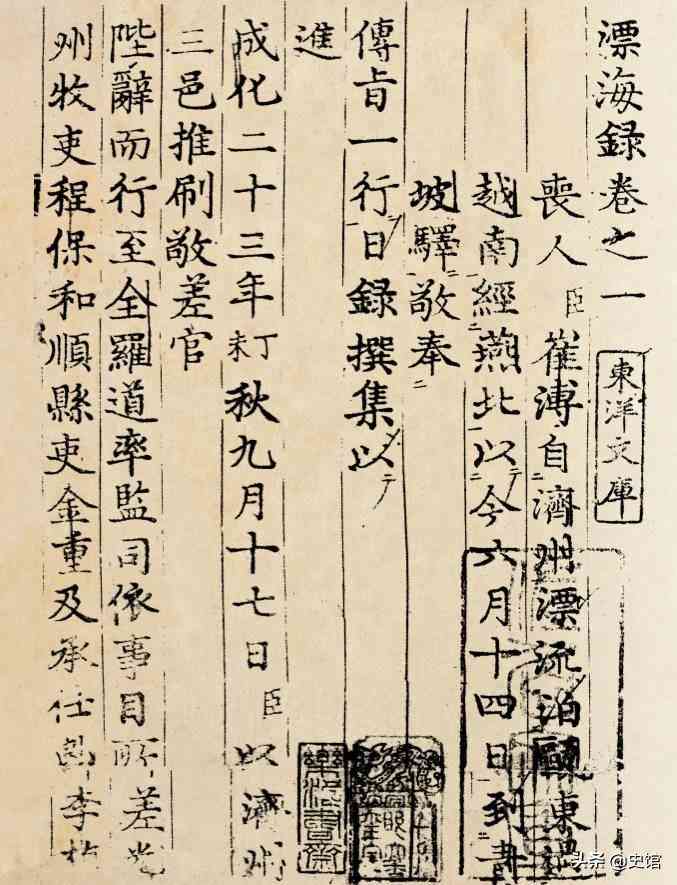 漂海録卷之一
東洋文庫
喪人臣崔溥自濟州漂流泊甌東過
越南經燕北以今六月十四日到青
坡驛敬奉
傳旨一行日錄撰集以
進
成化二十三年丁未秋九月十七日臣以濟州
三邑推刷敬差官
陛辭而行至全羅道率監司依事目所差光
州牧吏程保和順縣吏金重及承任郎李
头条 @史馆